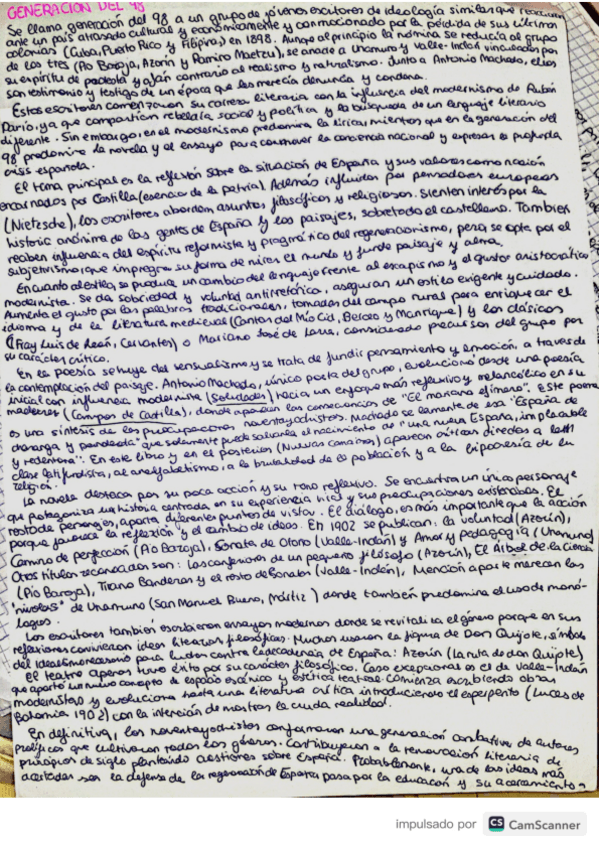 GENERACIÓN DEL 98
Se llama generación del 98 a un grupo de jóvenes escritores de ideología similar que reaccionan
ante un país atrasado cultural y económicamente y conmocionado por la pérdida de sus últimas
colonias (Cuba, Puerto Rico y Filipinas) en 1898. Aunque al principio la nómina se reducía al grupo
de los tres (Pío Baroja, Azorín y Ramiro Maetzu), se añade a Unamuno y Valle-Inclán vinculados por
su espíritu de protesta y afán contrario al realismo y naturalismo. Junto a Antonio Machado, ellos
son testimonio y testigo de un época que les merecía denuncia y condena.
Estos escritores comenzaron su carrera literaria con la influencia del modernismo de Rubén
Darío, ya que compartían rebeldía social y política y la búsqueda de un lenguaje literario
diferente. Sin embargo, en el modernismo predomina la lírica mientras que en la generación del
98 predomina la novela y el ensayo para conmover la conciencia nacional y expresar la profunda
crisis española.
El tema principal es la reflexión sobre la situación de España y sus valores como nación
encarnados por Castilla (esencia de la patria). Además influidos por pensadores europeos
(Nietzsche), los escritores abordan asuntos filosóficos y religiosos. Sienten interés por la
historia anónima de las gentes de España y los paisajes, sobretodo el castellano. También
reciben influencia del espíritu reformista y pragmático del regeneracionismo, pero se opta por el
subjetivismo, que impregna su forma de mirar el mundo y funde paisaje y alma.
En cuanto al estilo, se produce un cambio del lenguaje frente al escapismo y el gusto aristocrático
modernista. Se da sobriedad y voluntad antirretórica, aseguran un estilo exigente y cuidado.
Aumenta el gusto por las palabras tradicionales, tomadas del campo rural para enriquecer el
idioma y de la literatura medieval (Cantar del Mío Cid, Berceo y Manrique) y los clásicos
(Fray Luis de León, Cervantes) o Mariano José de Larra, considerado precursor del grupo por
su carácter crítico.
En la poesía se huye del sensualismo y se trata de fundir pensamiento y emoción, a través de
la contemplación del paisaje. Antonio Machado, único poeta del grupo, evolucionó desde una poesía
inicial con influencia modernista (Soledades) hacia un enfoque más reflexivo y melancólico en su
madurez (Campos de Castilla), donde aparecen las consecuencias de "El mañana efímero". Este poema
es una síntesis de las preocupaciones noventayochistas. Machado se lamenta de esa "España de
charanga y pandereta" que solamente puede salvarla el nacimiento de "una nueva España, implacable
y redentora". En este libro y en el posterior (Nuevas canciones) aparecen críticas directas a la
clase latifundista, al analfabetismo, a la brutalidad de la población y a la hipocresía de la
religión.
La novela destaca por su poca acción y su tono reflexivo. Se encuentra un único personaje
que protagoniza una historia centrada en su experiencia vital y sus preocupaciones existenciales. El
resto de personajes, aporta diferentes puntos de vistas. El diálogo, es más importante que la acción
porque favorece la reflexión y el cambio de ideas. En 1902 se publican: la voluntad (Azorín),
Camino de perfección (Pío Baroja), Sonata de Otoño (Valle-Inclán) y Amor y pedagogía (Unamuno)
Otros títulos reconocidos son: Las confesiones de un pequeño filósofo (Azorín), El Árbol de la Ciencia
(Pío Baroja), Tirano Banderas y el resto de Sonatas (Valle-Inclán), Mención aparte merecen las
"nivolas" de Unamuno (San Manuel Bueno, Mártir) donde también predomina el uso de monó-
logos.
Los escritores también escribieron ensayos modernos donde se revitaliza el género porque en sus
reflexiones convivieron ideas literarias filosóficas. Muchos usaron la figura de Don Quijote, símbolo
del idealismo para luchar contra la decadencia de España: Azorín (La ruta de don Quijote)
El teatro apenas tuvo éxito por su carácter filosófico. Caso excepcional es el de Valle-Inclán
que aportó un nuevo concepto de espacio escénico y estética teatral. Comienza escribiendo obras
modernistas y evoluciona hasta una literatura crítica introduciendo el esperpento (Luces de
Bohemia 1902) con la intención de mostrar la cruda realidad.
En definitiva, los noventayochistas conformaron una generación combativa de autores
prolíficos que cultivaron todos los géneros. Contribuyeron a la renovación literaria de
principios de siglo planteando cuestiones sobre España. Probablemente, una de las ideas más
acertadas son la defensa de la regeneración de España pasa por la educación y su acercamiento
impulsado por CS CamScanner